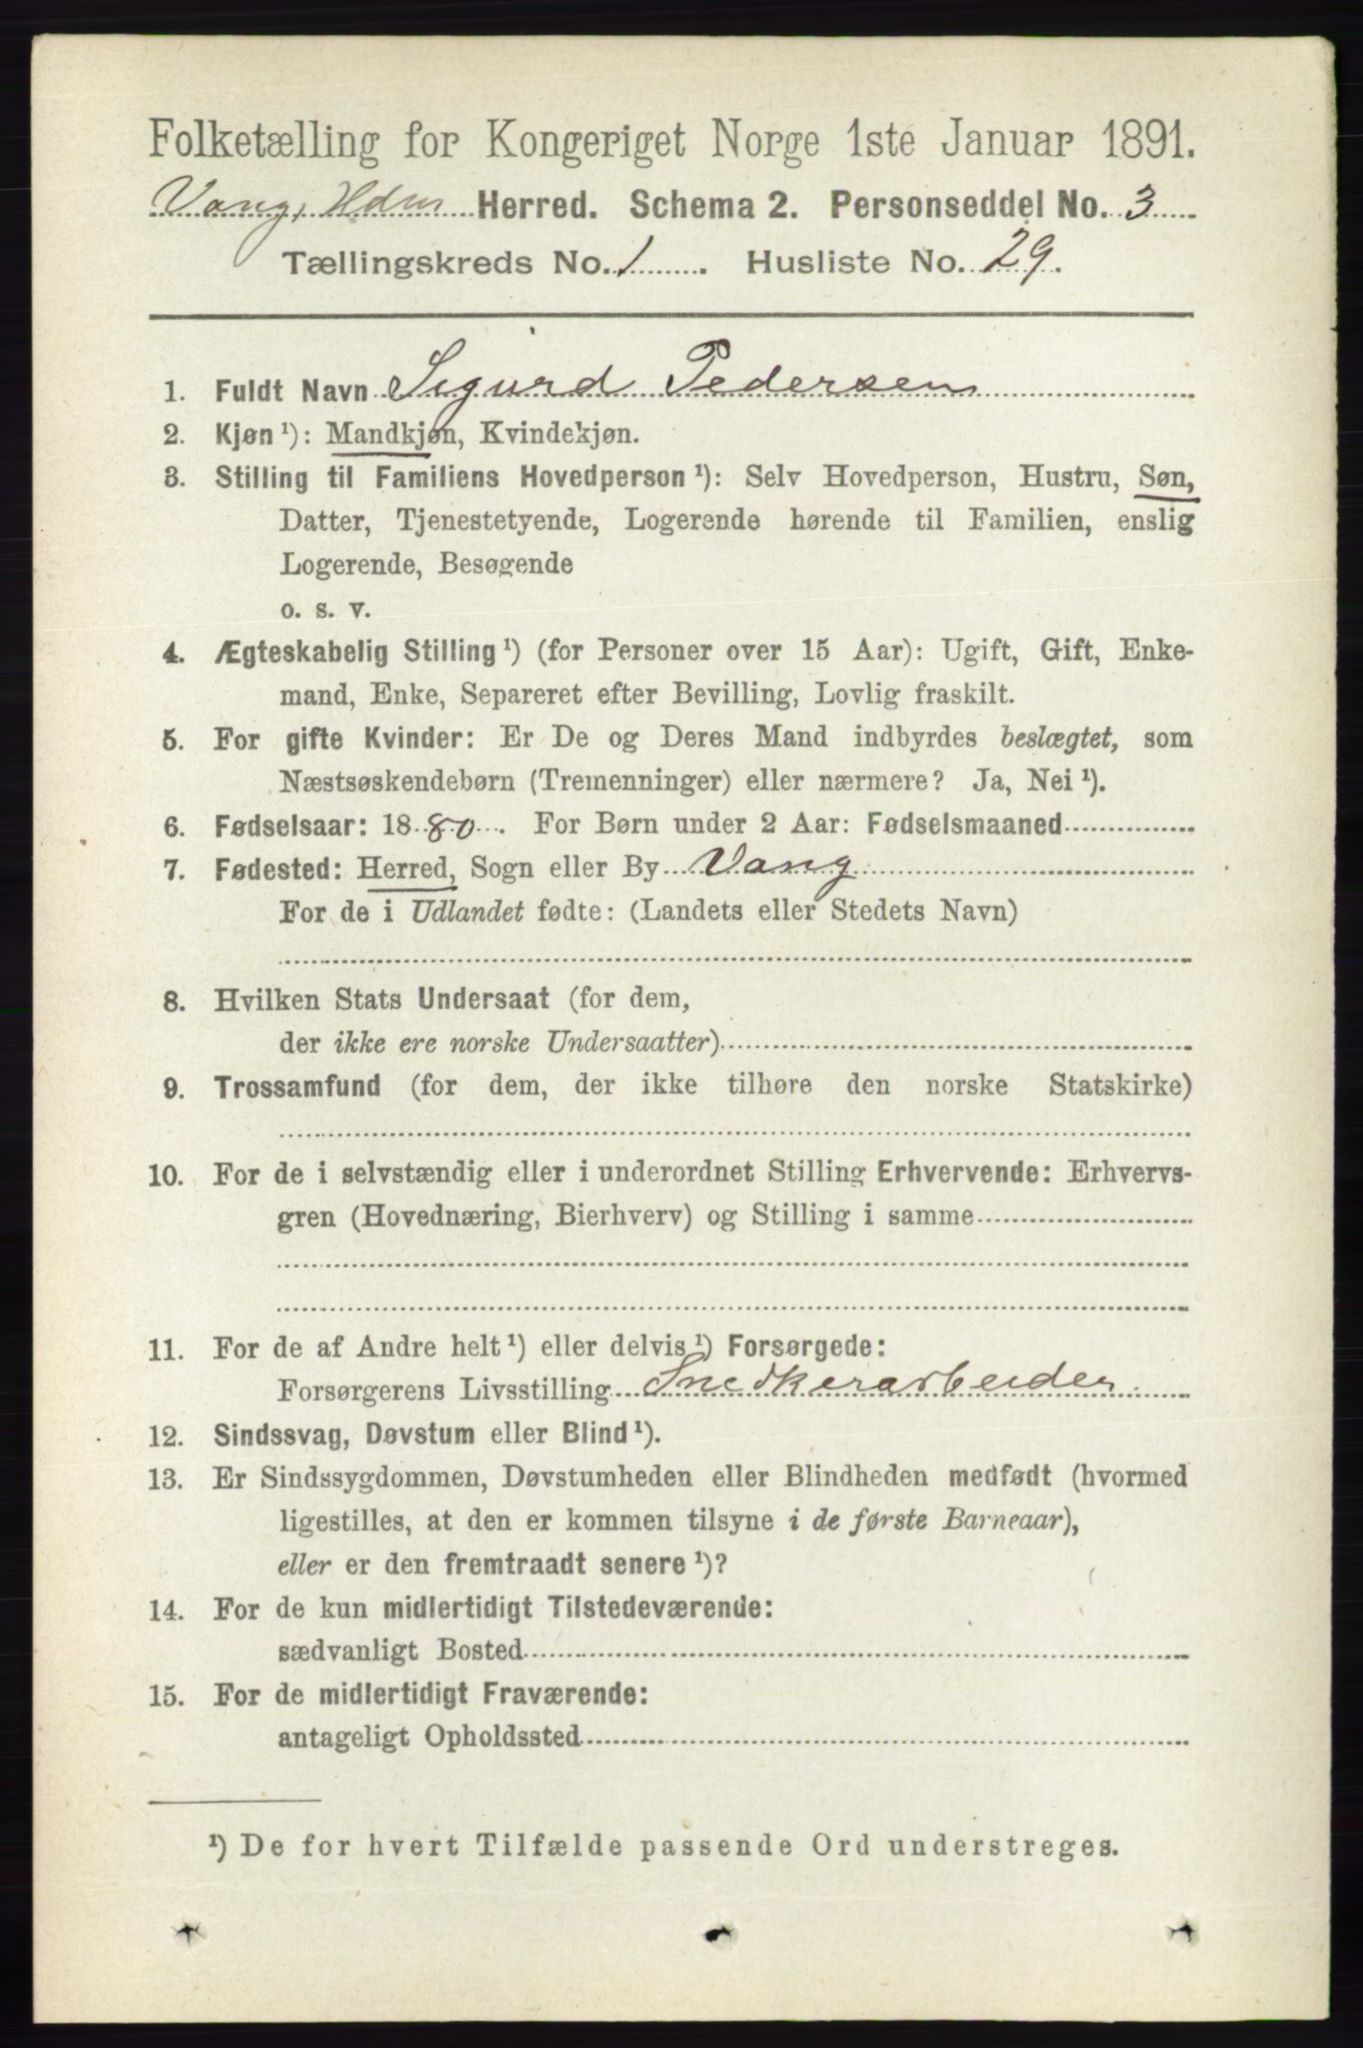 Folketælling for Kongeriget Norge 1ste Januar 1891.
Vang, Hdm Herred. Schema 2. Personseddel No. 3
Tællingskreds No. 1. Husliste No. 29.
1. Fuldt Navn Sigurd Pedersen
2. Kjøn ¹): Mandkjøn, Kvindekjøn.
3. Stilling til Familiens Hovedperson ¹): Selv Hovedperson, Hustru, Søn,
Datter, Tjenestetyende, Logerende hørende til Familien, enslig
Logerende, Besøgende
o. s. v.
4. Ægteskabelig Stilling ¹) (for Personer over 15 Aar): Ugift, Gift, Enke-
mand, Enke, Separeret efter Bevilling, Lovlig fraskilt.
5. For gifte Kvinder: Er De og Deres Mand indbyrdes beslægtet, som
Næstsøskendebørn (Tremenninger) eller nærmere? Ja, Nei ¹).
6. Fødselsaar: 1880. For Børn under 2 Aar: Fødselsmaaned
7. Fødested: Herred, Sogn eller By Vang
For de i Udlandet fødte: (Landets eller Stedets Navn)
8. Hvilken Stats Undersaat (for dem,
der ikke ere norske Undersaatter)
9. Trossamfund (for dem, der ikke tilhøre den norske Statskirke)
10. For de i selvstændig eller i underordnet Stilling Erhvervende: Erhvervs-
gren (Hovednæring, Bierhverv) og Stilling i samme
11. For de af Andre helt ¹) eller delvis ¹) Forsørgede:
Forsørgerens Livsstilling Snedkerarbeider
12. Sindssvag, Døvstum eller Blind ¹).
13. Er Sindssygdommen, Døvstumheden eller Blindheden medfødt (hvormed
ligestilles, at den er kommen tilsyne i de første Barneaar),
eller er den fremtraadt senere ¹)?
14. For de kun midlertidigt Tilstedeværende:
sædvanligt Bosted
15. For de midlertidigt Fraværende:
antageligt Opholdssted
¹) De for hvert Tilfælde passende Ord understreges.